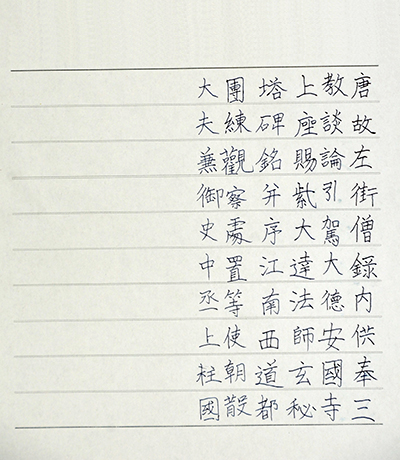 唐故左街僧錄內供奉三
教談論引駕大德安國寺
上座賜紫大達法師玄秘
塔碑銘并序江南西道都
團練觀察處置等使朝散
大夫兼御史中丞上柱國